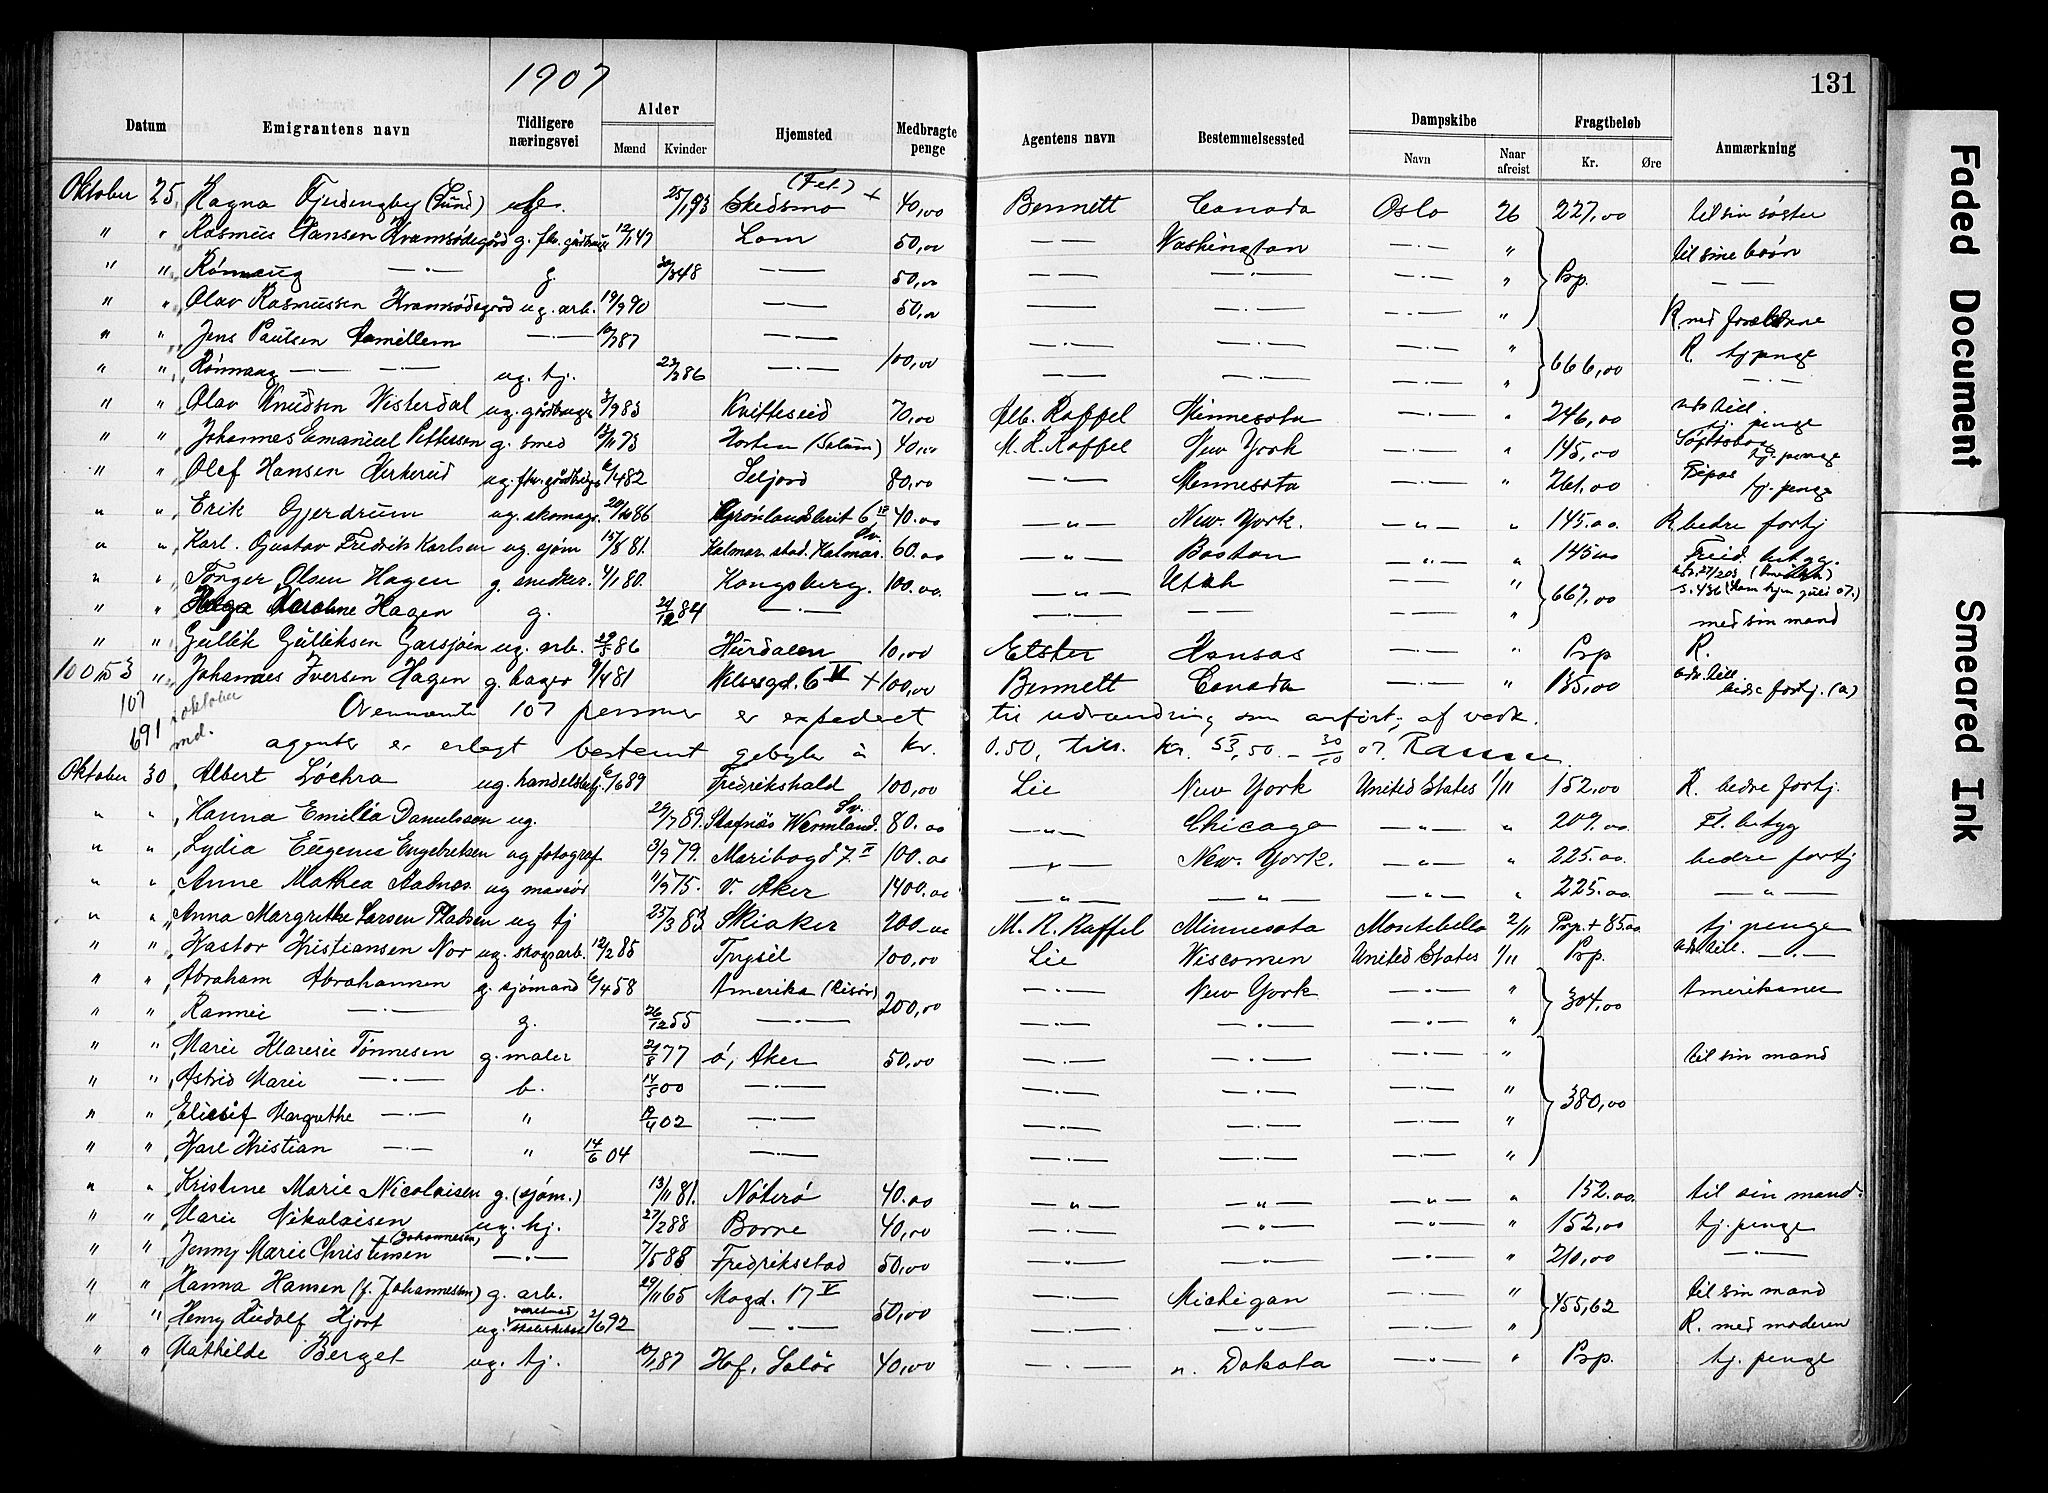 1907
131
Datum Emigrantens navn Tidligere næringsvei Alder Mænd Kvinder Hjemsted Medbragte penge Agentens navn Bestemmelsessted Dampskibe Navn Naar afreist Fragtbeløb Kr. Øre Anmærkning
Oktober 25. Ragna Fjeldingby (Lund) ug. 25/1 93 Skedsmo (Fet) + 40,00 Bennett Canada Oslo 26 227,00 til sin søster
" " Rasmus Hansen Kramsødegård g. fhv. gårdbruger 12/1 47 Lom 50,00 — — Washington — . — " til sine børn
" " Rønnaug — . — g 348 — — 50,00 — — — . — — . — " Prp. — —
" " Olav Rasmussen Kramsødegård ug. arb. 19/9 90 — — 50,00 — . — — . — — . — " R med forældrene
" " Jens Paulsen — . — 10/3 87 — . — 100,00 — . — — . — — . — " 666,00 R. tj. penge
" " Rønnaug — . — ug. tj. 86 — . — — — — . — — . — " — . —
" " Olav Knudsen Visterdal ug. gårdbruger 3/9 83 Kvitteseid 70,00 Alb. Raffel Minnesota — . — " 246,00 tj. penge
" " Johannes Emanuel Pettersen g. smed 12/11 73 Horten 40,00 M. R. Raffel New York — . — " 145,00 tj. penge
" " Olef Hansen Herkerud ug. fhv. gårdbruger 6/4 82 Seljord 80,00 — . — Minnesota — . — " 261.00 tj. penge
" " Erik Gjerdrum ug. skomager 20/10 86 Grønlandsleret 6 IV 40.00 — " — New York. — " — " 145.00. R. bedre fortj
" " Karl. Gustav Fredrik Karlsen ug. sjøm 15/8 81. Kalmar. stad. Kalmar. Sv. 60.00 — " — Boston — " 145.00 betyg.
" " Tørger Olsen Hagen g. snedker. 4/1 80. Kongsberg. 100.00. — " — Utah — — " 667.00 s. 436 (kom hjem juli 07.)
" " Helga Karoline Hagen g. 84 — . — — — — . — " med sin mand
" " Gullik Gulliksen Garsjøen ug. arb. 29/5 86 Hurdalen 10,00 Elster Kansas — . — " Prp R.
10053 " Johannes Iversen Hagen g. bager 9/4 81 Nilsesgd. 6 V + 100,00 Bennett Canada — . — " 135,00 bedre fortj. (a)
107 i oktober Ovennævnte 107 personer er expederet til udvandring som anført; af vedk.
691 md. agenter er erlagt bestemt gebyhr à kr. 0.50, tils. kr. 53,50. — 30/10 07.
Oktober 30. Albert Løchra ug. handelsbetj. 6/6 89 Fredrikshald 100,00 Lie New York United States 1/11 152,00 R. bedre fortj.
" " Hanna Emilia Danielsen ug. 29/7 89. Skafnäs Wermland. Sv. 80.00 — " — Chicago — " — " 209.00. Fl. betyg
" " Lydia Eugenie Engebretsen ug fotograf 3/9 79. Maribogd 7 II 100.00 — " — New. York. — " — " 225.00. bedre fortj
" " Anne Mathea Aadnas. ug massør 11/9 75. V. Aker 1400.00 — " — — " — — " — " 225.00. — " —
" " Anna Margrethe Larsen Pladsen ug tj 25/3 83. Skiaker 200.00 M. R. Raffel Minnesota Montebello 2/11 Prp. + 85.00 tj penge
" " Kastor Kristiansen Nor ug. skogsarb. 12/2 85 Trysil 100,00 Lie Visconsin United States 1/11 Prp. — . —
" " Abraham Abrahamsen g. sjømand 6/4 58 Amerika (Risør) 200,00 — . — New York — . — " 304,00 Amerikaner
" " Rannei — . — g. 26/12 55 — . — — . — — . — — . — "
" " Marie Klaresie Tønnesen g. maler 21/8 77 ø, Aker 50,00 — . — — . — — . — " 380,00 til sin mand
" " Astrid Marie — . — b. 14/5 00 — . — — . — — . — — . — "
" " Elisif Margrethe — . — " 19/4 02 — . — — . — — . — — . — "
" " Karl Kristian — . — " 14/6 04 — . — — . — — . — — . — "
" " Kristine Marie Nicolaisen g. (sjøm.) 13/11 81. Nøterø 40.00 — " — — " — — " — " 152.00. til sin mand.
" " Marie Nikolaisen ug. hj. 27/2 88 Borre 40,00 — . — — " — — " — " 152,00 tj. penge
" " Jenny Marie Christensen (Johannesen) — . — 7/5 88 Fredrikstad 50,00 — . — — . — — . — " 210,00 — . —
" " Hanna Hansen (f. Johannessen) g. arb. 29/11 65 Mogd. 17 V 50,00 — . — Michigan — . — " 455,62 til sin mand
" " Henry Rudolf Hjort ug. 2/6 92 — . — — . — — " — — . — " R. med moderen
" " Mathilde Berget ug. tj. 10/1 87 Hof, Solør 40,00 — . — n. Dakota — . — " Prp. tj. penge
Faded Document
Smeared Ink